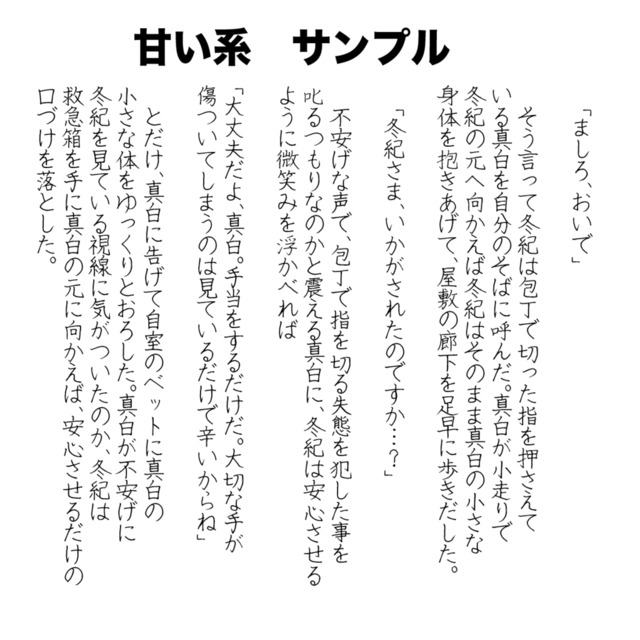 甘い系　サンプル
「ましろ、おいで」
そう言って冬紀は包丁で切った指を押さえて
いる真白を自分のそばに呼んだ。真白が小走りで
冬紀の元へ向かえば冬紀はそのまま真白の小さな
身体を抱きあげて、屋敷の廊下を足早に歩きだした。
「冬紀さま、いかがされたのですか…？」
不安げな声で、包丁で指を切る失態を犯した事を
叱るつもりなのかと震える真白に、冬紀は安心させる
ように微笑みを浮かべれば
「大丈夫だよ、真白。手当をするだけだ。大切な手が
傷ついてしまうのは見ているだけで辛いからね」
とだけ、真白に告げて自室のベットに真白の
小さな体をゆっくりとおろした。真白が不安げに
冬紀を見ている視線に気がついたのか、冬紀は
救急箱を手に真白の元に向かえば、安心させるだけの
口づけを落とした。